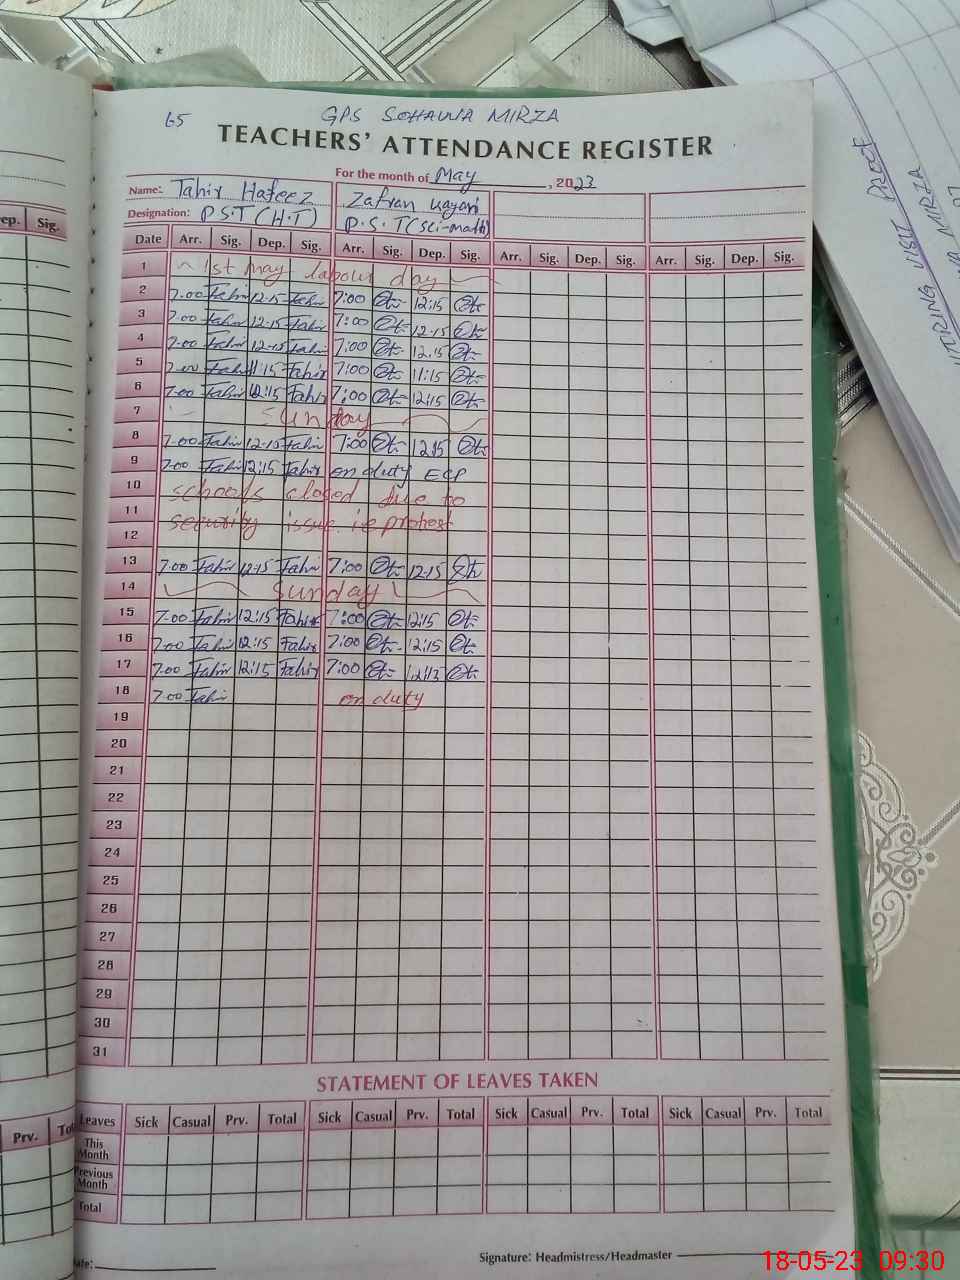 65 GPS SOHAWA MIRZA
TEACHERS' ATTENDANCE REGISTER
For the month of May, 2023
Name: Tahir Hafeez Zafran
Designation: P.S.T (H.T) P.S.T (Sci-math)
Date Arr. Sig. Dep. Sig. Arr. Sig. Dep. Sig. Arr. Sig. Dep. Sig. Arr. Sig. Dep. Sig.
1 1st May labour day
2 7.00 Tahir 12-15 Tahir 7:00 12:15
3 7.00 Tahir 12-15 Tahir 7:00 12-15
4 7.00 Tahir 12-15 Tahir 7:00 12.15
5 7.00 Tahir 11:15 Tahir 7:00 11:15
6 7.00 Tahir 12:15 Tahir 7:00 12:15
7 Sunday
8 7.00 Tahir 12-15 Tahir 7:00 12:15
9 7.00 Tahir 12:15 Tahir on duty ECP
10 schools closed due to
11 security issue i.e protest
12
13 7.00 Tahir 12-15 Tahir 7:00 12-15
14 Sunday
15 7.00 Tahir 12:15 Tahir 7:00 12:15
16 7.00 Tahir 12:15 Tahir 7:00 12:15
17 7.00 Tahir 12:15 Tahir 7:00
18 7.00 Tahir on duty
19
20
21
22
23
24
25
26
27
28
29
30
31
STATEMENT OF LEAVES TAKEN
Leaves Sick Casual Prv. Total Sick Casual Prv. Total Sick Casual Prv. Total Sick Casual Prv. Total
This Month
Previous Month
Total
Signature: Headmistress/Headmaster
ep. Sig.
Prv.
VISIT PROOF
MIRZA
18-05-23 09:30